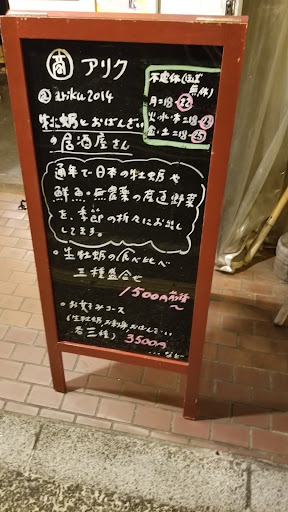 商 アリク
@ariku2014
牡蠣とおばんざい
の居酒屋さん
不定休(ほぼ
無休)
月=18-22
火.水.木=18-23
金.土=18-25
通年で日本の牡蠣や
鮮魚・無農薬の産直野菜
を、季節の折々にお出し
してます。
・生牡蠣の食べ比べ
三種盛合せ
1500円前後
～
・おまかせコース
(生牡蠣、お刺身、おばんざい...
各三種) 3500円
... など